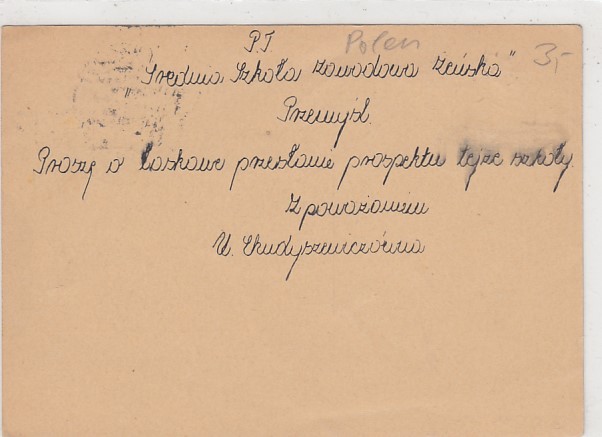 P.T. Polen 3,-
"Średnia Szkoła Zawodowa Żeńska"
Przemyśl.
Proszę o łaskawe przesłanie prospektu tejże szkoły.
Z poważaniem